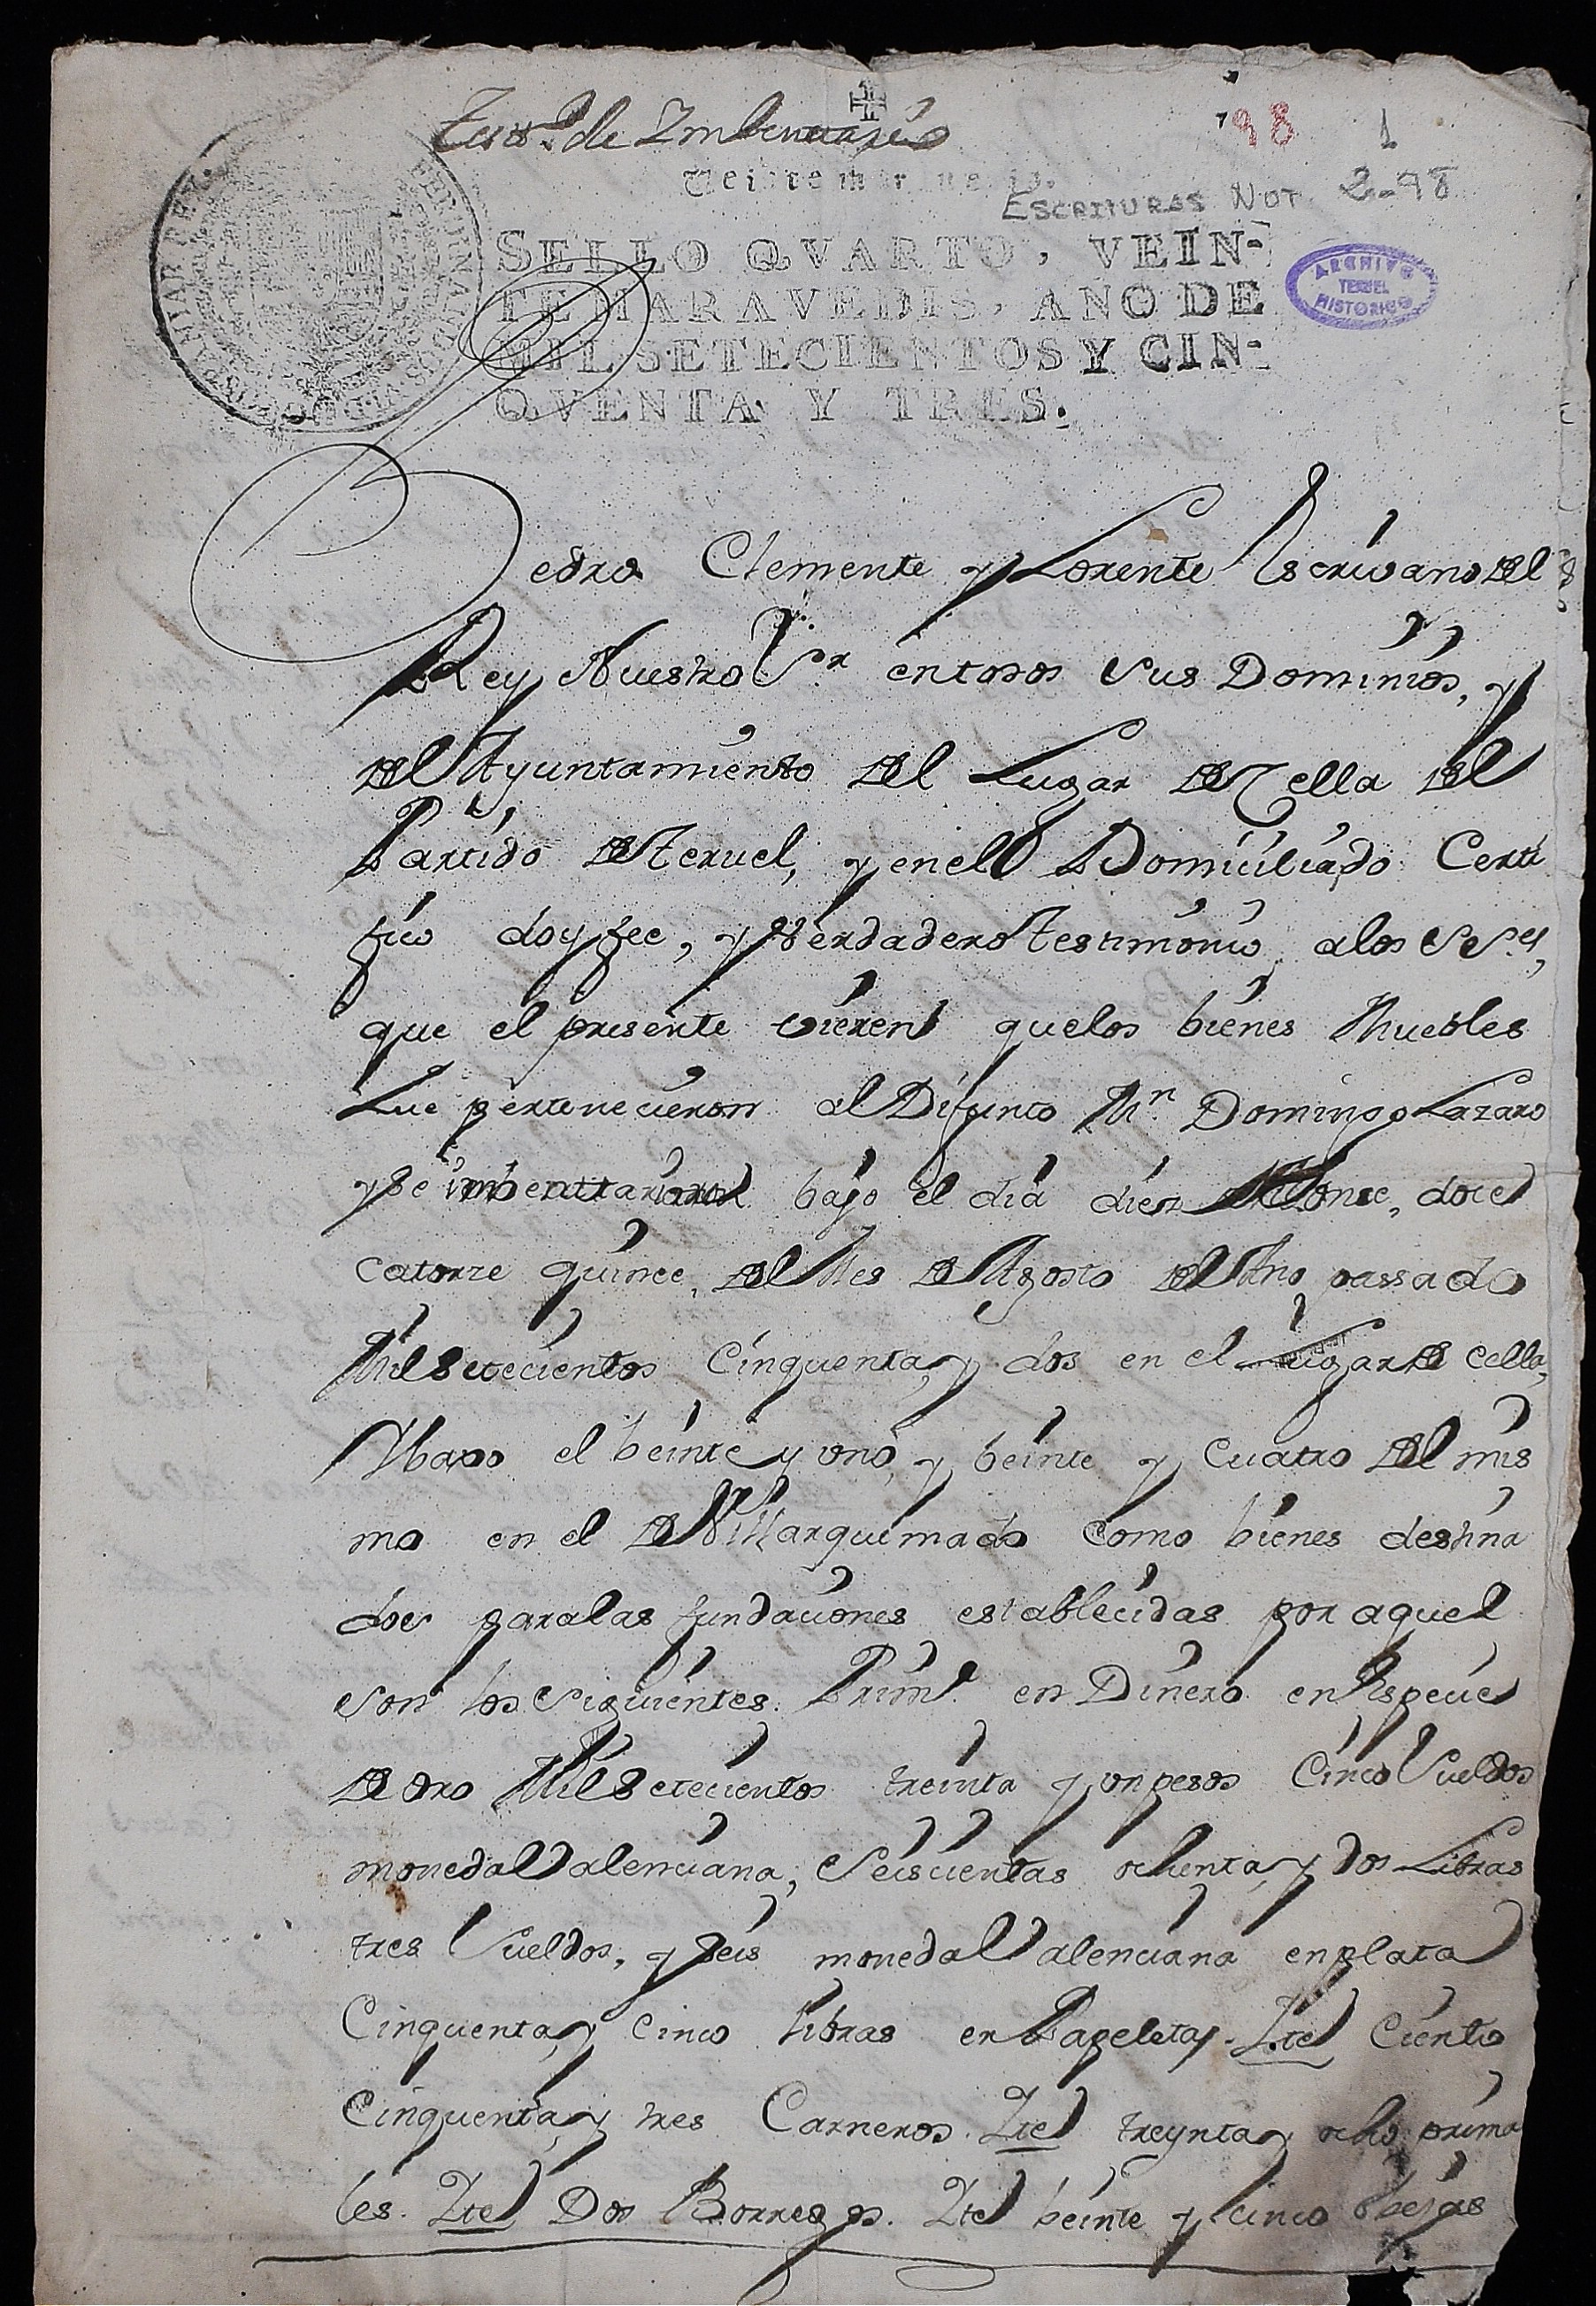 Testo. de Imbentario
98 1
Veinte maravedis.
ESCRITURAS NOT. 2-98
SELLO QVARTO, VEIN-
TE MARAVEDIS, AÑO DE
MIL SETECIENTOS Y CIN-
QVENTA Y TRES.
ARCHIVO
TERUEL
HISTORICO
Pedro Clemente y Lorente Escrivano del
Rey Nuestro Sor en todos sus Dominios, y
del Ayuntamiento del Lugar de Cella del
Partido de Teruel, y en el Domiciliado Certi
fico doy fee, y Verdadero Testimonio, alos SSes,
que el presente vieren que los bienes Muebles
Que pertenecieron al Difunto Mn Domingo Lazaro
y se imbentariaron bajo el dia diez once, doce
catorze quince, del Mes de Agosto del Año passado
Mil Setecientos Cinquenta y dos en el Lugar de Cella,
Y baxo el beinte y uno, y beinte y Cuatro del mis
mo en el de Villarquemado como bienes destina
dos para las fundaciones establecidas por aquel
son los siguientes. Primte. en Dinero en Especie
de oro Mil Setecientos treinta y un pesos Cinco Sueldos
moneda Valenciana, Seiscientas ochenta, y dos Libras
tres Sueldos, y Seis moneda Valenciana en plata
Cinquenta y cinco libras en Papeletas. Ite Ciento
Cinquenta y tres Carneros. Ite treynta y ocho prima
les. Ite Dos Borregos. Ite beinte y cinco obejas